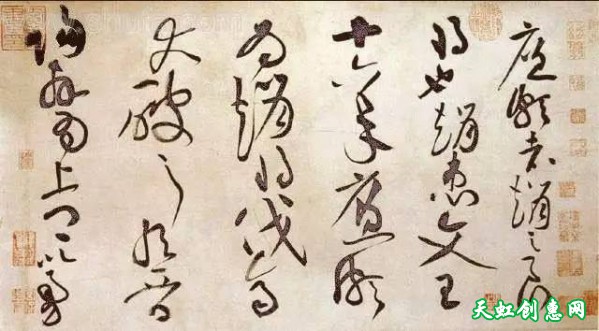 廉頗者趙之良
將也趙惠文王
十六年廉頗
為趙將伐齊
大破之取晉
陽拜為上卿以勇
天虹创惠网